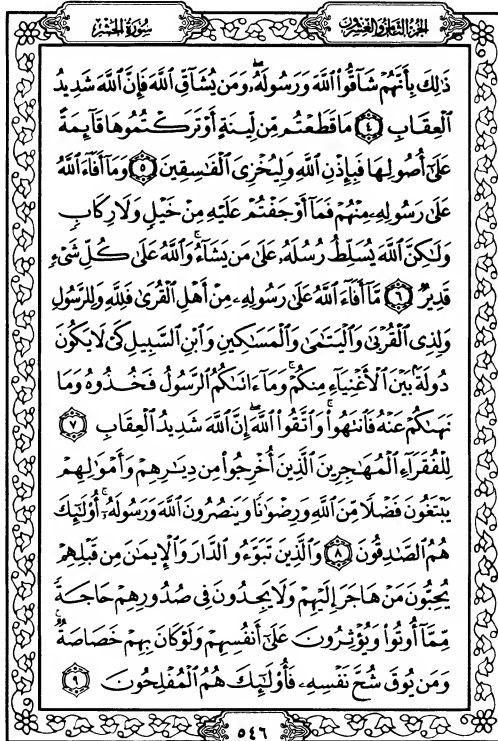 الجزء الثامن والعشرون
سورة الحشر
ذَٰلِكَ بِأَنَّهُمْ شَآقُّوا۟ ٱللَّهَ وَرَسُولَهُۥ ۖ وَمَن يُشَآقِّ ٱللَّهَ فَإِنَّ ٱللَّهَ شَدِيدُ
ٱلْعِقَابِ ٤ مَا قَطَعْتُم مِّن لِّينَةٍ أَوْ تَرَكْتُمُوهَا قَآئِمَةً
عَلَىٰٓ أُصُولِهَا فَبِإِذْنِ ٱللَّهِ وَلِيُخْزِىَ ٱلْفَٰسِقِينَ ٥ وَمَآ أَفَآءَ ٱللَّهُ
عَلَىٰ رَسُولِهِۦ مِنْهُمْ فَمَآ أَوْجَفْتُمْ عَلَيْهِ مِنْ خَيْلٍ وَلَا رِكَابٍ
وَلَٰكِنَّ ٱللَّهَ يُسَلِّطُ رُسُلَهُۥ عَلَىٰ مَن يَشَآءُ ۚ وَٱللَّهُ عَلَىٰ كُلِّ شَىْءٍ
قَدِيرٌ ٦ مَّآ أَفَآءَ ٱللَّهُ عَلَىٰ رَسُولِهِۦ مِنْ أَهْلِ ٱلْقُرَىٰ فَلِلَّهِ وَلِلرَّسُولِ
وَلِذِى ٱلْقُرْبَىٰ وَٱلْيَتَٰمَىٰ وَٱلْمَسَٰكِينِ وَٱبْنِ ٱلسَّبِيلِ كَىْ لَا يَكُونَ
دُولَةًۢ بَيْنَ ٱلْأَغْنِيَآءِ مِنكُمْ ۚ وَمَآ ءَاتَىٰكُمُ ٱلرَّسُولُ فَخُذُوهُ وَمَا
نَهَىٰكُمْ عَنْهُ فَٱنتَهُوا۟ ۚ وَٱتَّقُوا۟ ٱللَّهَ ۖ إِنَّ ٱللَّهَ شَدِيدُ ٱلْعِقَابِ ٧
لِلْفُقَرَآءِ ٱلْمُهَٰجِرِينَ ٱلَّذِينَ أُخْرِجُوا۟ مِن دِيَٰرِهِمْ وَأَمْوَٰلِهِمْ
يَبْتَغُونَ فَضْلًا مِّنَ ٱللَّهِ وَرِضْوَٰنًا وَيَنصُرُونَ ٱللَّهَ وَرَسُولَهُۥٓ ۚ أُو۟لَٰٓئِكَ
هُمُ ٱلصَّٰدِقُونَ ٨ وَٱلَّذِينَ تَبَوَّءُو ٱلدَّارَ وَٱلْإِيمَٰنَ مِن قَبْلِهِمْ
يُحِبُّونَ مَنْ هَاجَرَ إِلَيْهِمْ وَلَا يَجِدُونَ فِى صُدُورِهِمْ حَاجَةً
مِّمَّآ أُوتُوا۟ وَيُؤْثِرُونَ عَلَىٰٓ أَنفُسِهِمْ وَلَوْ كَانَ بِهِمْ خَصَاصَةٌ ۚ
وَمَن يُوقَ شُحَّ نَفْسِهِۦ فَأُو۟لَٰٓئِكَ هُمُ ٱلْمُفْلِحُونَ ٩
٥٤٦